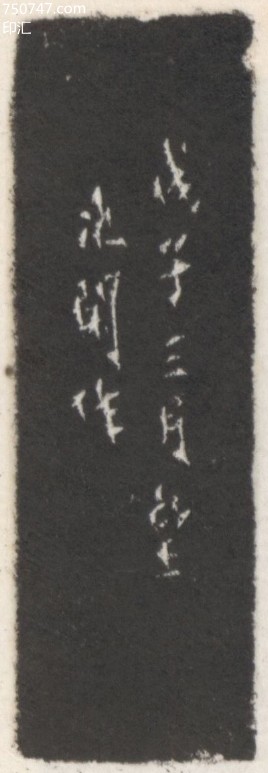 750747.com
印汇
戊子三月望
次閑作